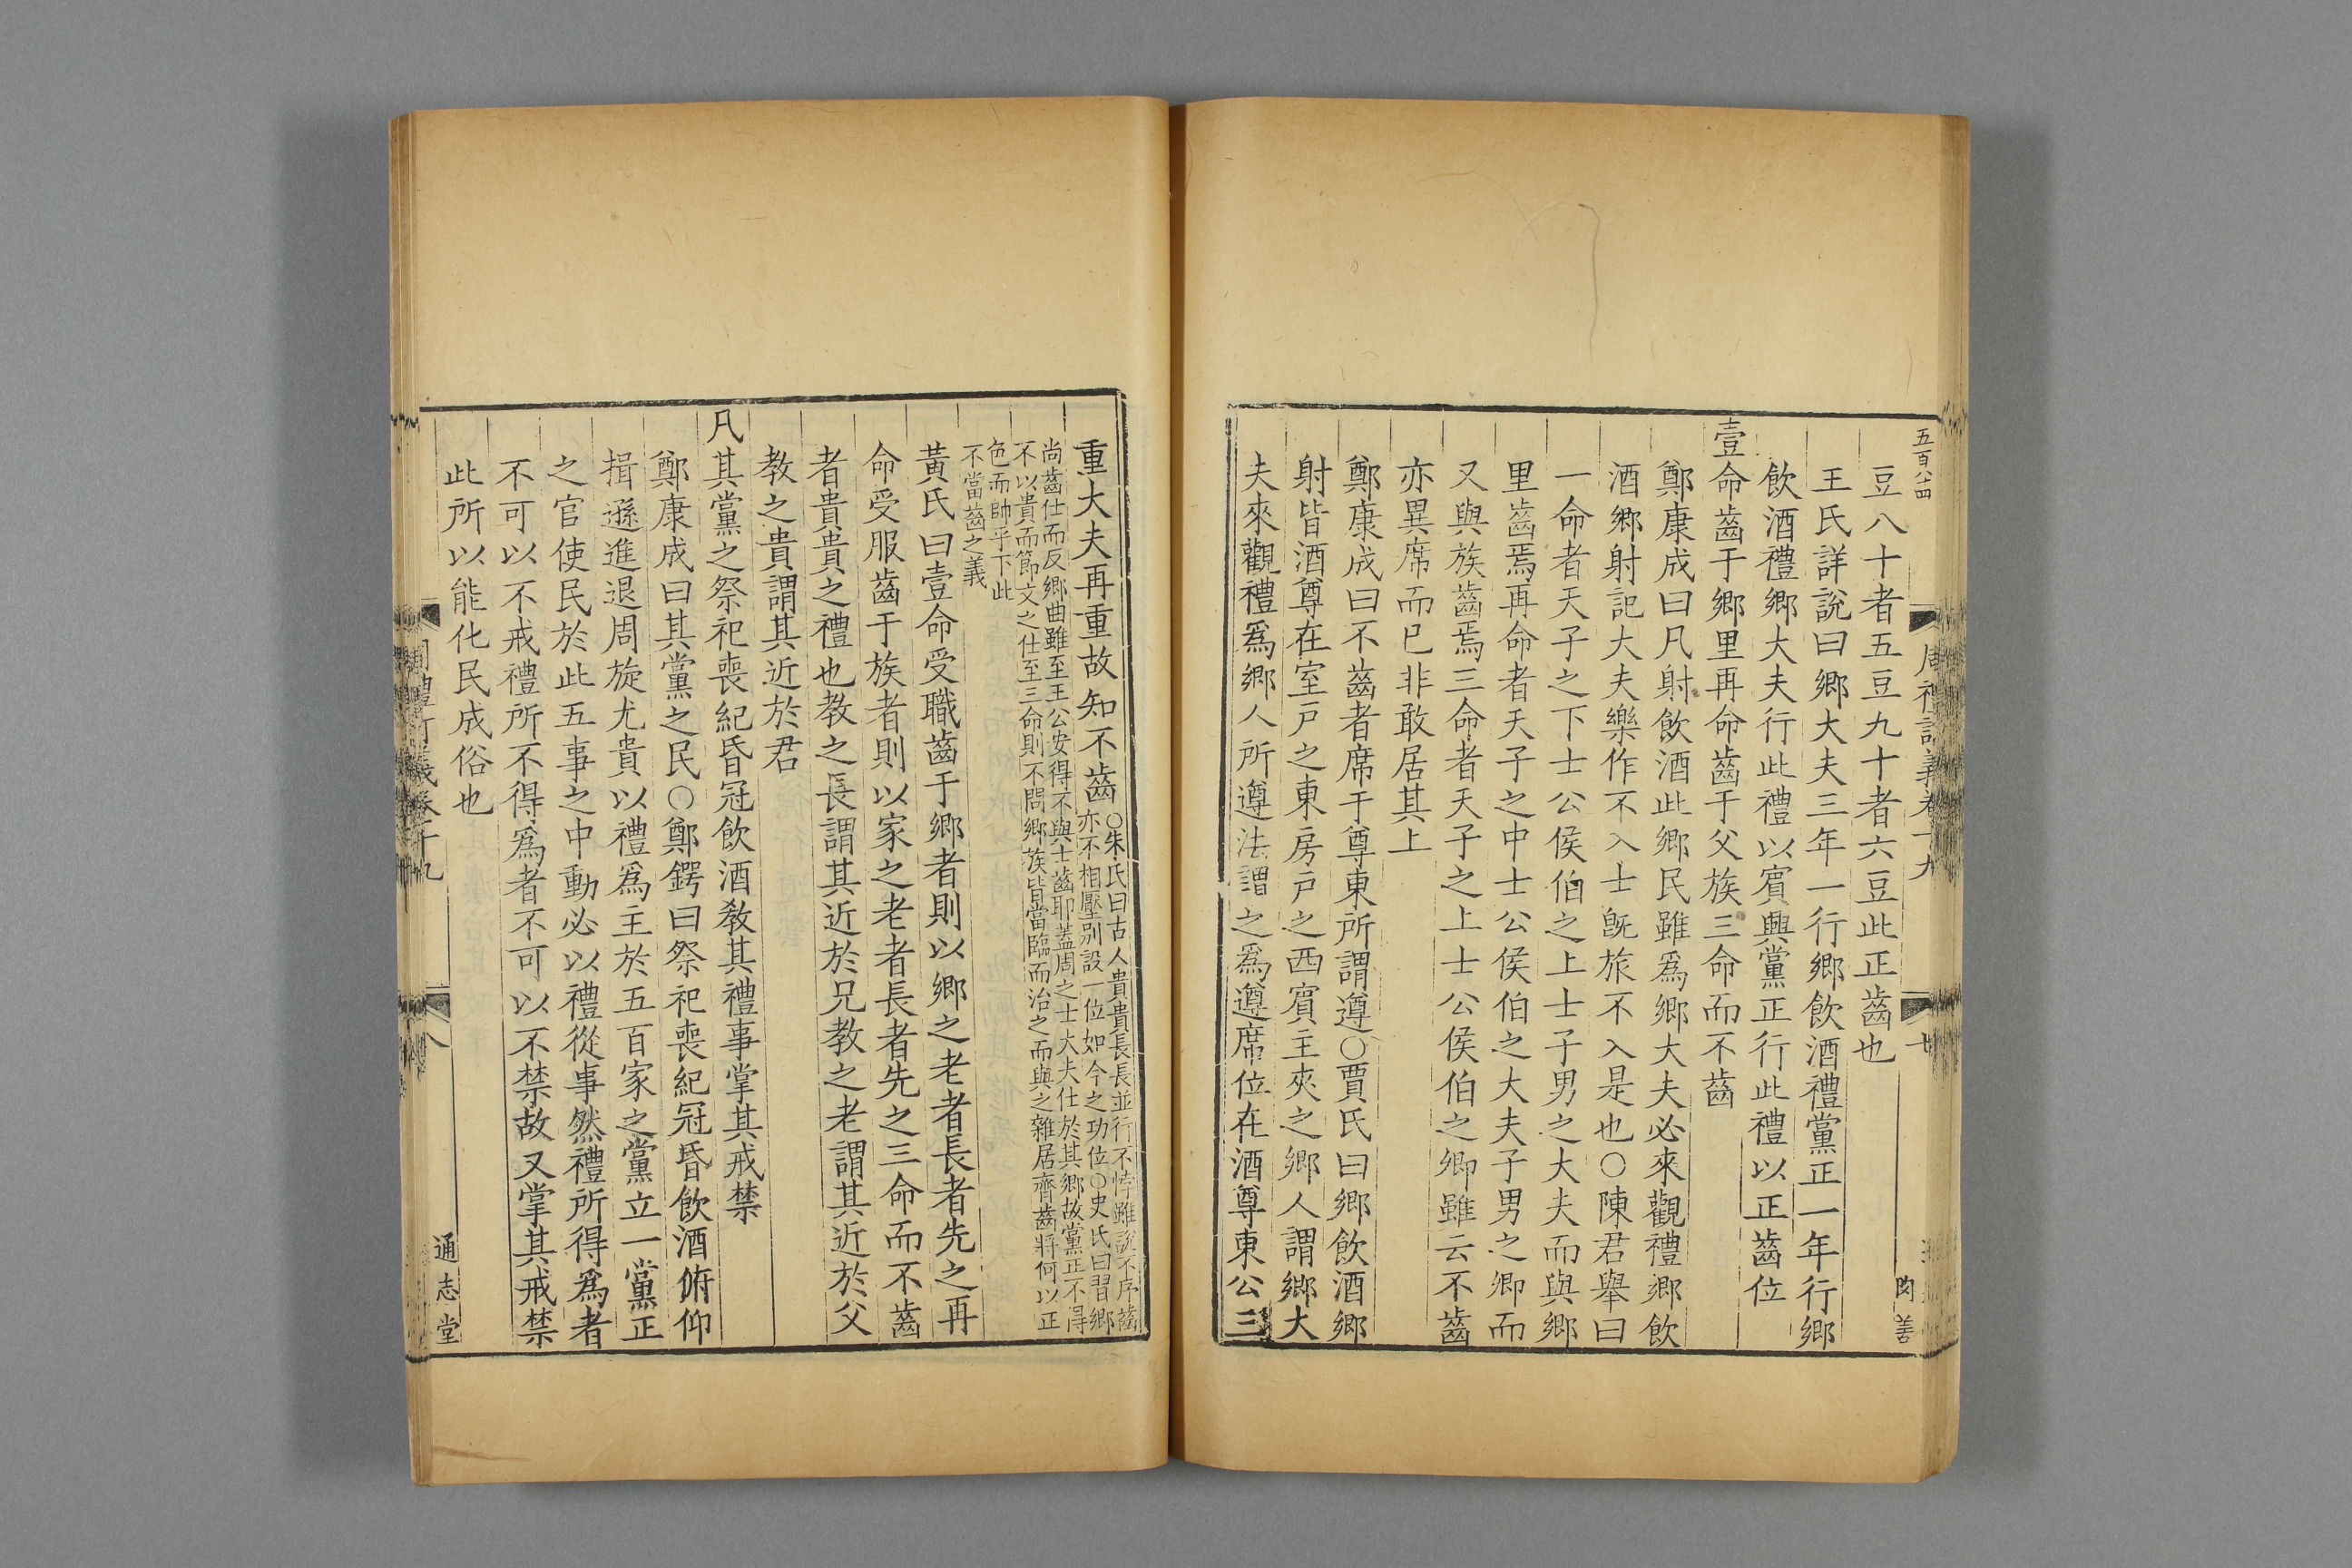 五百八十四
豆八十者五豆九十者六豆此正齒也
王氏詳說曰鄉大夫三年一行鄉飲酒禮黨正一年行鄉
飲酒禮鄉大夫行此禮以賓興黨正行此禮以正齒位
壹命齒于鄉里再命齒于父族三命而不齒
鄭康成曰凡射飲酒此鄉民雖爲鄉大夫必來觀禮鄉飲
酒鄉射記大夫樂作不入士旣旅不入是也○陳君舉曰
一命者天子之下士公侯伯之上士子男之大夫而與鄉
里齒焉再命者天子之中士公侯伯之大夫子男之卿而
又與族齒焉三命者天子之上士公侯伯之卿雖云不齒
亦異席而已非敢居其上
鄭康成曰不齒者席于尊東所謂遵○賈氏曰鄉飲酒鄉
射皆酒尊在室戶之東房戶之西賓主夾之鄉人謂鄉大
夫來觀禮爲鄉人所遵法謂之爲遵席位在酒尊東公三
重大夫再重故知不齒○朱氏曰古人貴貴長長並行不悖雖說不序齒
亦不相壓別設一位如今之功位○史氏曰習鄉
尚齒仕而反鄉曲雖至王公安得不與士齒耶蓋周之士大夫仕於其鄉故黨正不得
不以貴而節文之仕至三命則不問鄉族皆當臨而治之而與之雜居齊齒將何以正
色而帥乎下此
不當齒之義
黃氏曰壹命受職齒于鄉者則以鄉之老者長者先之再
命受服齒于族者則以家之老者長者先之三命而不齒
者貴貴之禮也教之長謂其近於兄教之老謂其近於父
教之貴謂其近於君
凡其黨之祭祀喪紀昏冠飲酒敎其禮事掌其戒禁
鄭康成曰其黨之民○鄭鍔曰祭祀喪紀冠昏飲酒俯仰
揖遜進退周旋尤貴以禮爲王於五百家之黨立一黨正
之官使民於此五事之中動必以禮從事然禮所得爲者
不可以不戒禮所不得爲者不可以不禁故又掌其戒禁
此所以能化民成俗也
通志堂